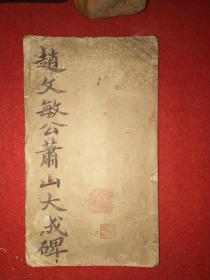 趙文敏公蕭山大成碑